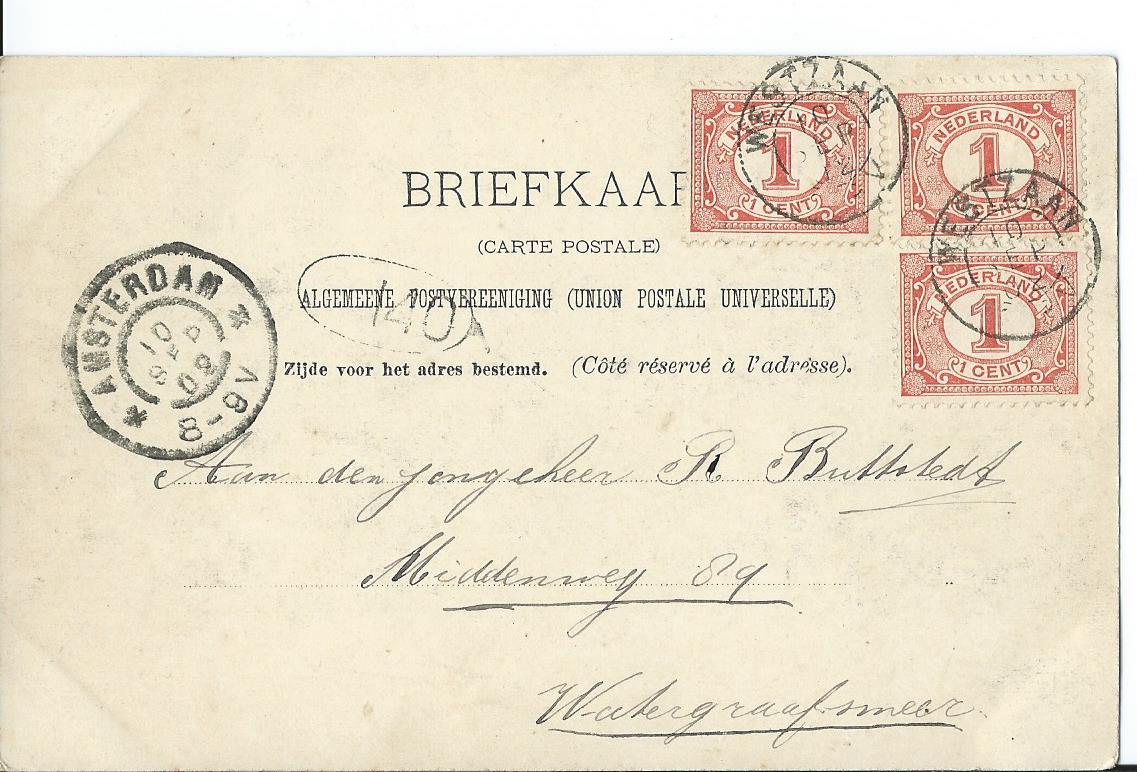 BRIEFKAAR
(CARTE POSTALE)
ALGEMEENE POSTVEREENIGING (UNION POSTALE UNIVERSELLE)
Zijde voor het adres bestemd. (Côté réservé à l'adresse).
140
NEDERLAND
1
1 CENT
NEDERLAND
1
CENT
NEDERLAND
1
1 CENT
WESTZAAN
10
SEP
WESTZAAN
10
SEP
* AMSTERDAM *
10
SEP
8-9V
Aan den jongeheer R Buttstedt
Middenweg 89
Watergraafsmeer